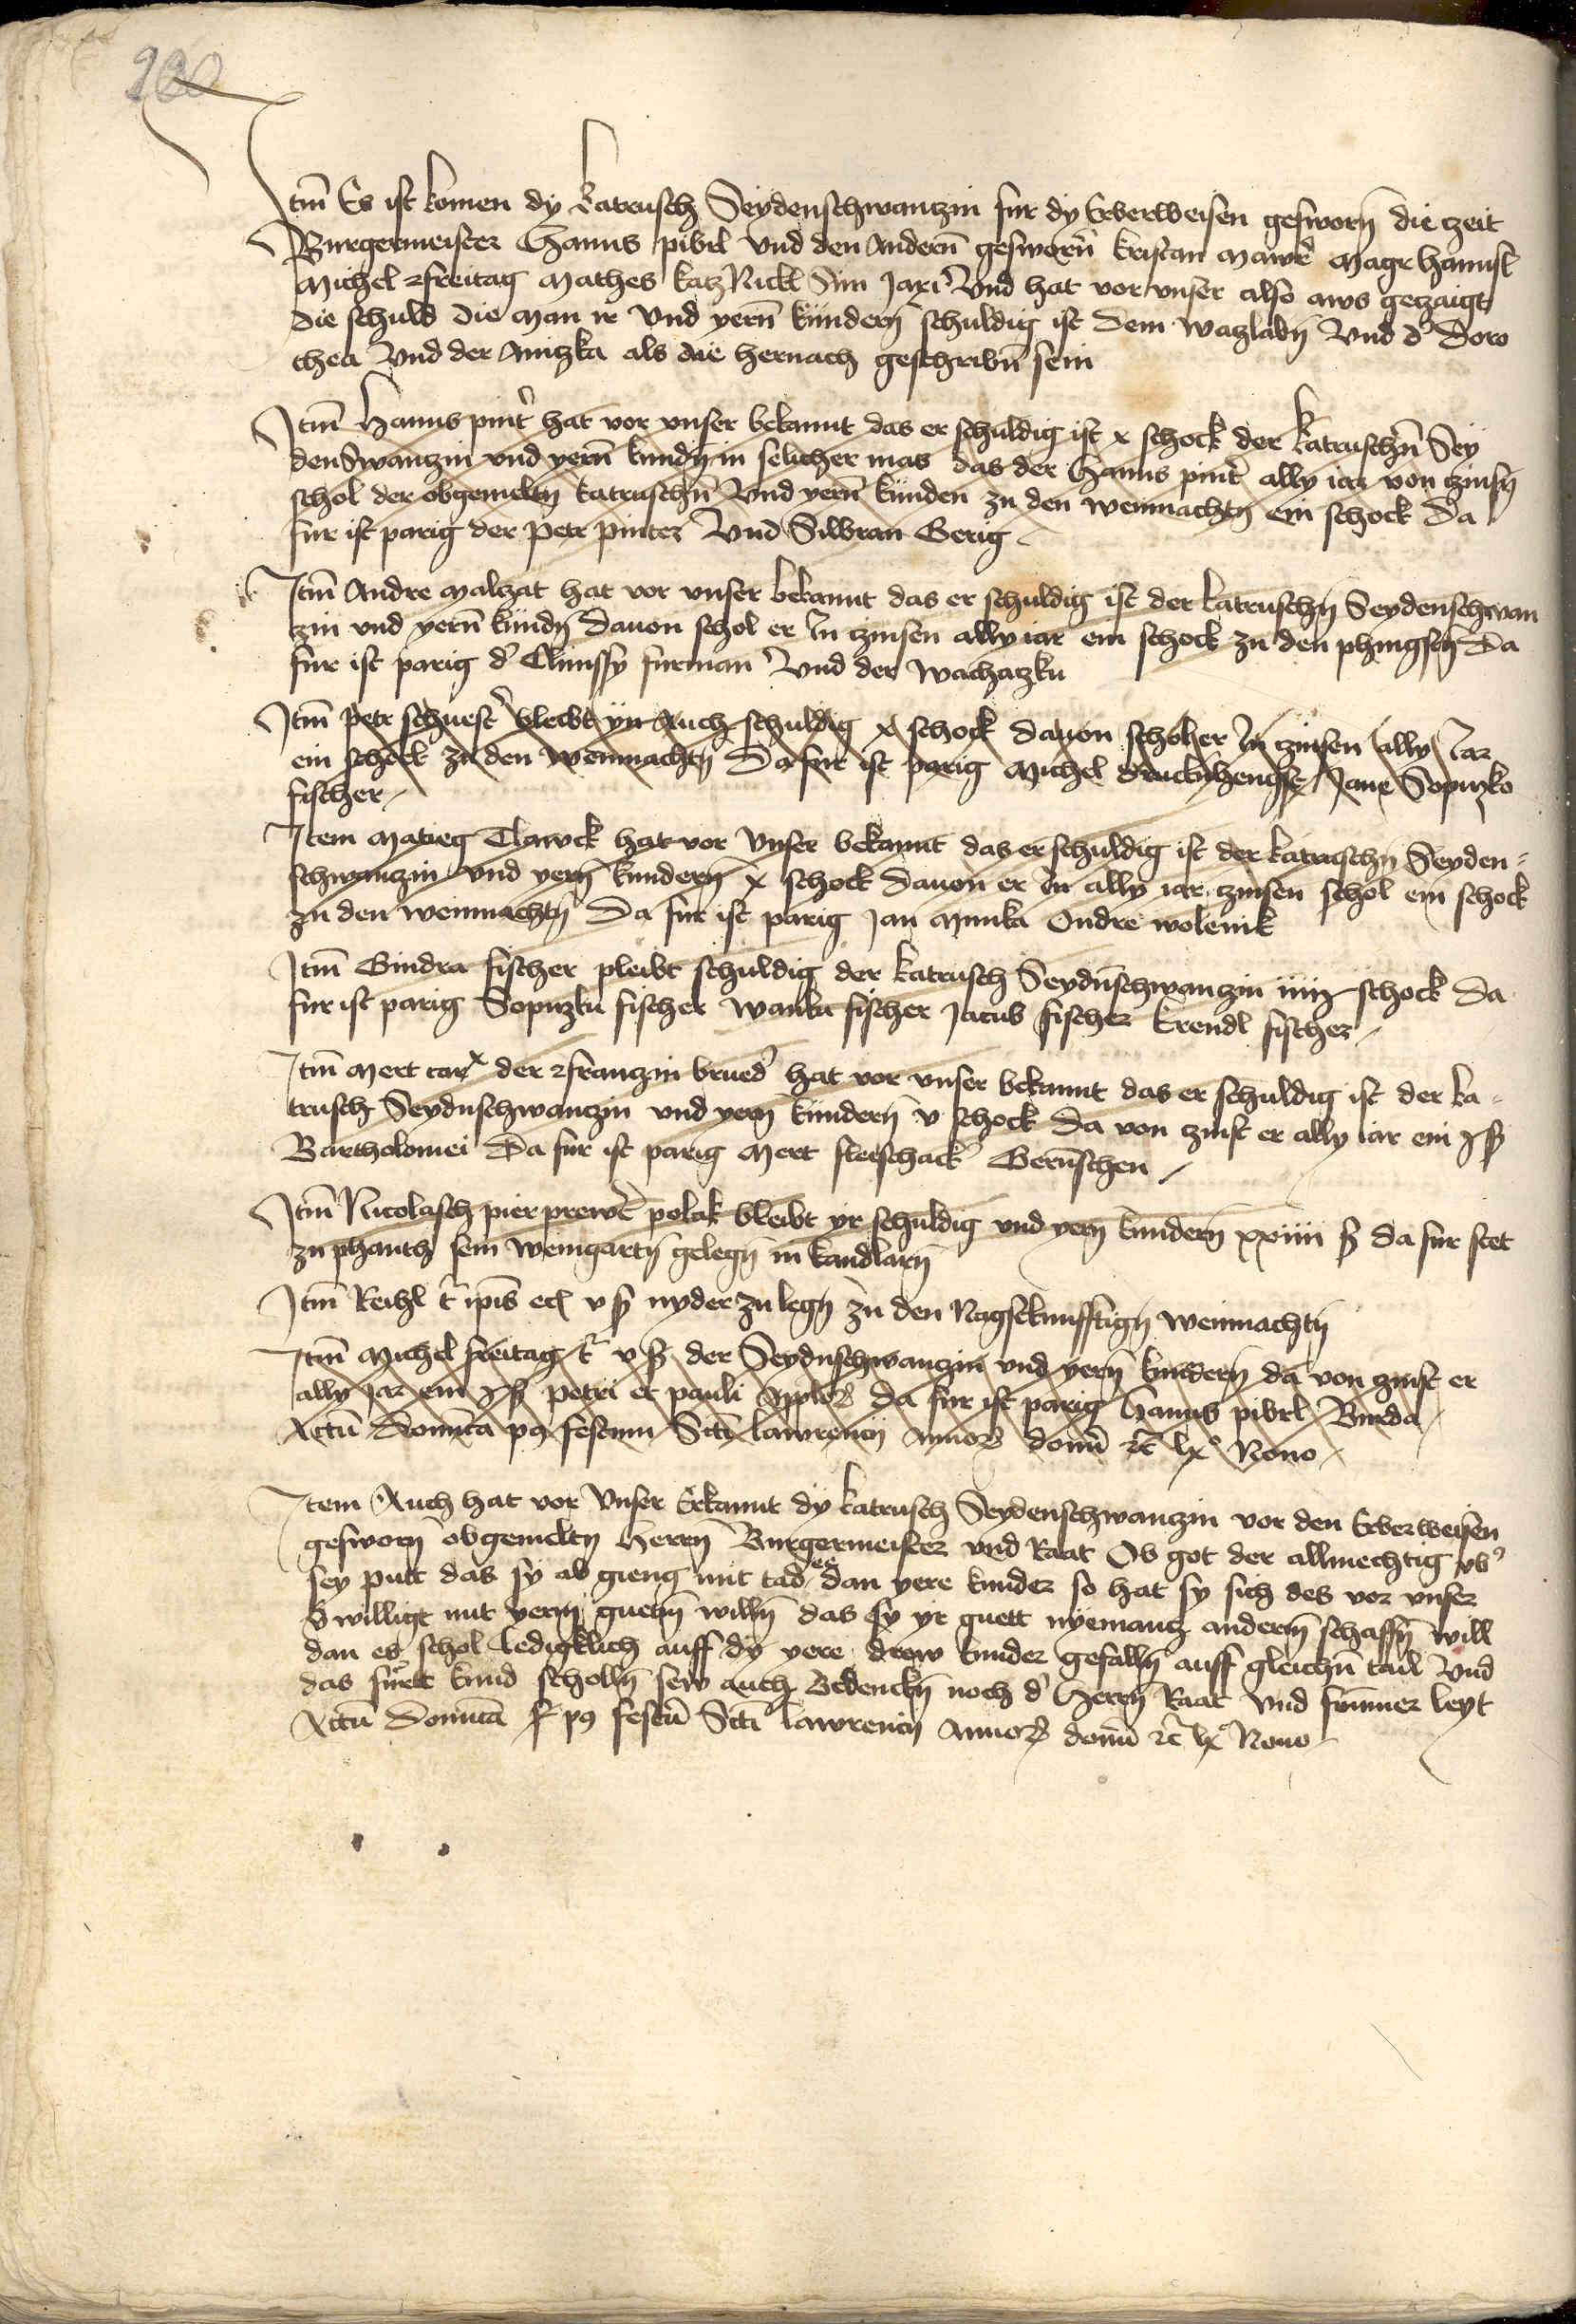 200
Itm̄ Es ist komen dy katrusch Seydenschwanczin fur dy Erberweisen gesworn̄ die zeit
Burgermeister Hanns pibrl vnd den Andern̄ gesworn̄ kristan mawr̄ magr hannsl
Michel freitag Mathes katz Nickl Sim Jaxi Vnd hat vor vnser also aws geczaigt
die schuld die man ir vnd yern̄ kündern̄ schuldig ist dem waczlabn̄ vnd d̓ Doro
thea vnd der Aniczka als die hernach geschribn̄ sein
Itm̄ Hanns pint̓ hat vor vnser bekannt das er schuldig ist x schock der katruschn̄ Sey
denswanczin vnd yern̄ kundn̄ in selicher mas das der Hanns pint̓ ally iar von czinsn̄
schol der obgemeltn̄ katruschn̄ vnd yern̄ künden zu den weinnachtn̄ ein schock da
fur ist parig der Petr pinter vnd Silbran Gerig
Itm̄ Andre malczat hat vor vnser bekannt das er schuldig ist der katruschn̄ Seydenschwan
czin vnd yern̄ kündn̄ dauon schol er In czinsen ally iar ein schock zu den phingstn̄ da
fur ist parig d̓ Climssy furman vnd der wachaczku
Itm̄ petr schuest̓ bleibt yn Auch schuldig x schock dauon schol er In czinsen ally Iar
ein schock zu den weinnachtn̄ Da fur ist parig Michel druckhengst Jane Sopuczko
fischer
Item matieg Clawck hat vor vnser bekannt das er schuldig ist der katruschn̄ Seyden
schwanczin vnd yern̄ kundern̄ x schock dauon er In ally iar czinsen schol ein schock
zu den weinnachtn̄ Da fur ist parig Jan munka Ondre wolenik
Itm̄ Gindra fischer pleibt schuldig der katrusch Seydn̄schwanczin schock da
fur ist parig Sopuczku fischer wanku fischer Jacub fischer krendl fischer
Itm̄ Mert der franczin brued̓ hat vor vnser bekannt das er schuldig ist der ka
trusch Seydnschwanczin vnd yern̄ kündern̄ v schock Da von czinst er ally iar ein
Bartholomei Da fur ist parig Mert fleischack̓ Gerun̄schen
Itm̄ Nicolasch pierprewt̓ polak bleibt yr schuldig vnd yern̄ kundern̄ xxiiii da fur stet
zu phantz sein weingartn̄ gelegn̄ in kandlarn̄
Itm̄ Reihl nyder zu legn̄ zu den Nagstkunfftign̄ weinnachtn̄
Itm̄ Michel freitag v der Seydnschwanczin vnd yern̄ kundern̄ da von czinst er
ally iar ein petri et pauli Applor̄ da fur ist parig Hanns pibrl Burda
Actū Domīca pꝰ festum Scti lawrencij Annor̄ domī lxº Nono
Item Auch hat vor vnser Erkannt dy katrusch Seydenschwanczin vor den Erberweisen
gesworn̄ obgemeltn̄ Herrn̄ Burgermeister vnd Raat Ob got der allmechtig vb̓
sey putt das sy ab gieng mit tad ee dan yere kinder so hat sy sich des vor vnser
v̓willigt mit yerm guetn̄ willn̄ das sy yr guett nyemancz anderm̄ schaffn̄ will
dan es schol ledigklich auff dy yere drew kinder gefalln̄ auff gleichn̄ tail vnd
das kind scholln̄ sew auch bedenckn̄ noch d̓ Herrn̄ Raat vnd frūmer leyt
Actū Domīca pꝰ festū Scti lawrencij Annor̄ domī lxº Nono